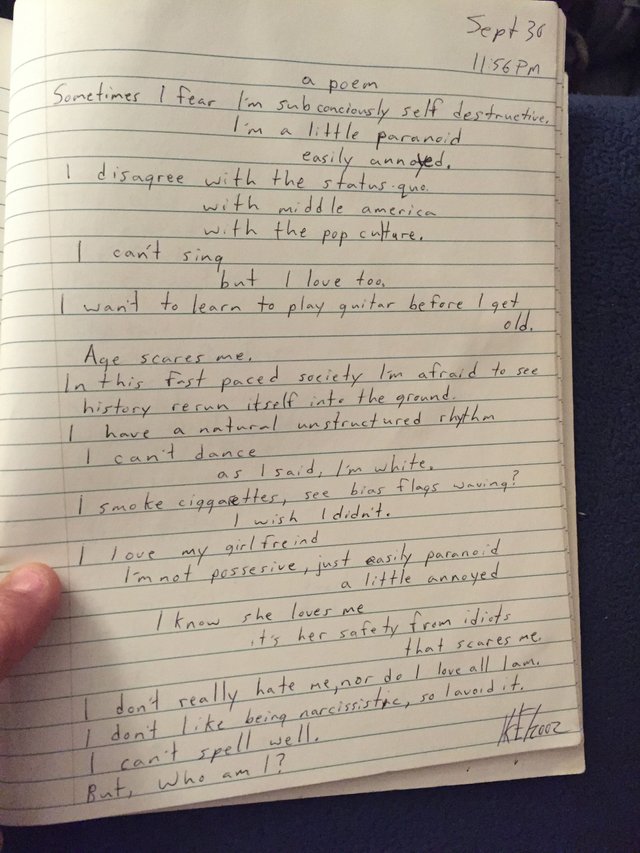 Sept 30
11:56 PM
a poem
Sometimes I fear I'm subconciously self destructive.
I'm a little paranoid
easily annoyed.
I disagree with the status-quo.
with middle america
with the pop culture.
I can't sing
but I love too.
I want to learn to play guitar before I get
old.
Age scares me.
In this fast paced society I'm afraid to see
history rerun itself into the ground.
I have a natural unstructured rhythm
I can't dance
as I said, I'm white.
I smoke ciggarettes, see bias flags waving?
I wish I didn't.
I love my girlfreind
I'm not possesive, just easily paranoid
a little annoyed
I know she loves me
it's her safety from idiots
that scares me.
I don't really hate me, nor do I love all I am.
I don't like being narcissistic, so I avoid it.
I can't spell well.
But, Who am I?
2002